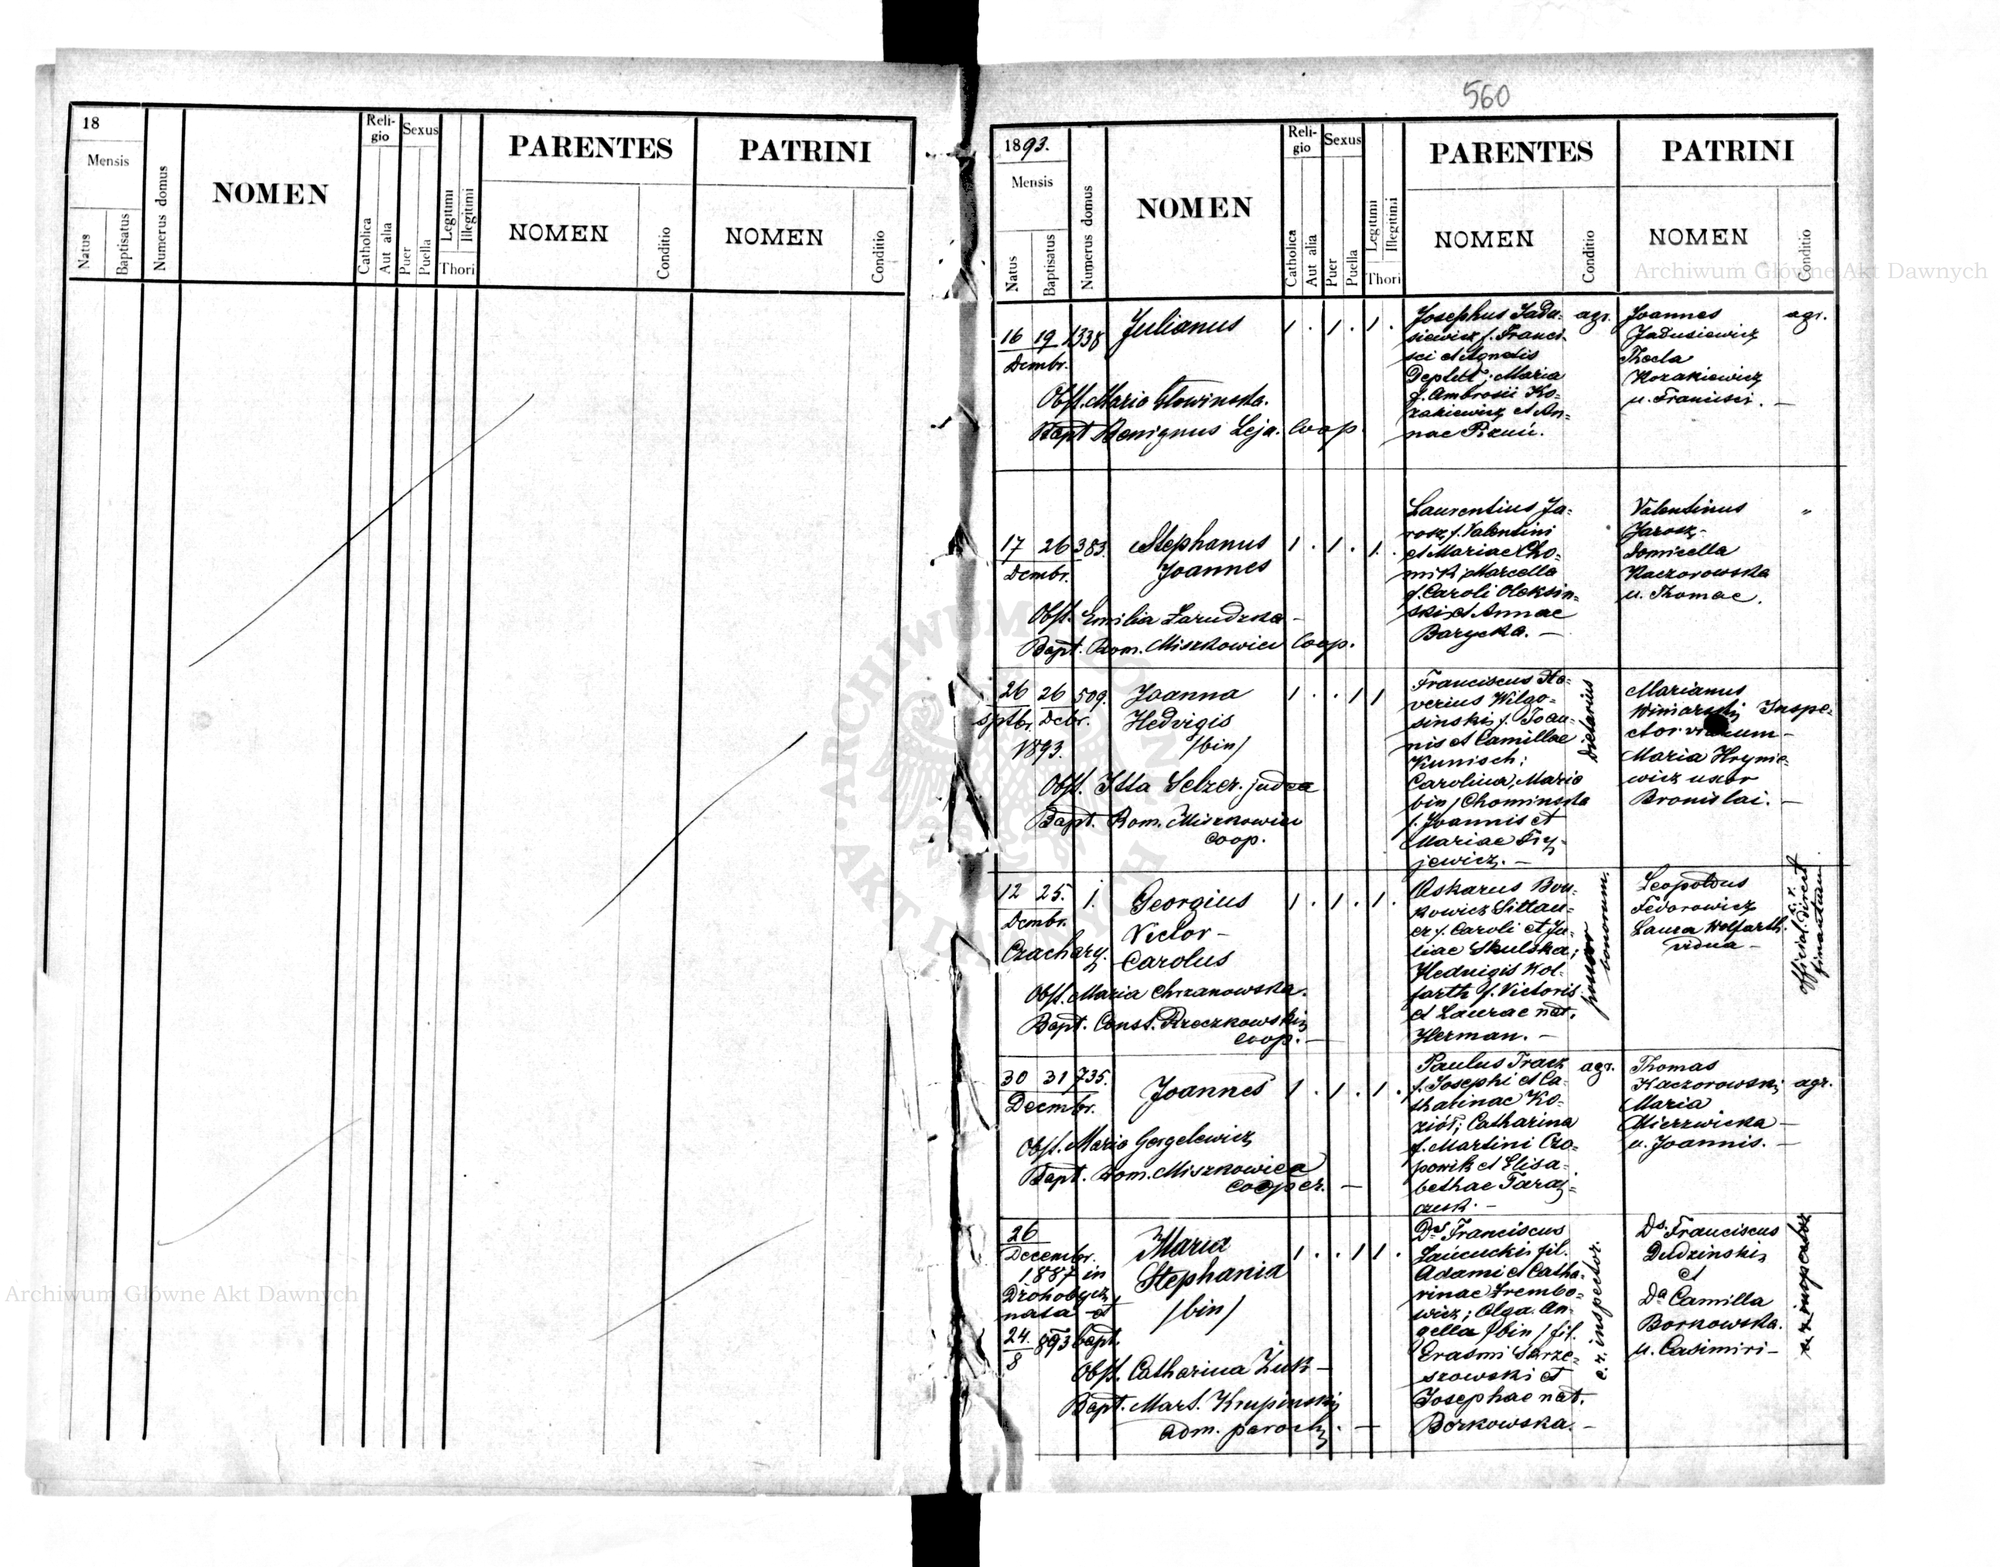 18
Mensis
Natus
Baptisatus
Numerus domus
NOMEN
Reli-
gio
Catholica
Aut alia
Sexus
Puer
Puella
Legitimi
Illegitimi
Thori
PARENTES
NOMEN
Conditio
PATRINI
NOMEN
Conditio
560
1893.
Mensis
Natus
Baptisatus
Numerus domus
NOMEN
Reli-
gio
Catholica
Aut alia
Sexus
Puer
Puella
Legitimi
Illegitimi
Thori
PARENTES
NOMEN
Conditio
PATRINI
NOMEN
Conditio
16 19 1338 Julianus 1 . 1 . 1 .
Dcmbr.
Obst. Maria Głowinska.
Bapt Benignus Leja. Coop.
Josephus Jadu-
siewicz f. Franci-
sci et Agnetis
Deptuł; Maria
f. Ambrosii Ko-
zakiewicz et An-
nae Pizuń.
agr.
Joannes
Jadusiewicz
Thecla
Kozakiewicz
u. Francisci. —
agr.
17 26 383. Stephanus 1 . 1 . 1 .
Dcmbr. Joannes
Obst. Emilia Zarudzka —
Bapt. Rom. Miszkowicz Coop.
Laurentius Ja-
rosz, f. Valentini
et Mariae Cho-
mik; Marcella
f. Caroli Oleksin-
ski et Annae
Barycka. —
Valentinus
Jarosz —
Domicella
Kaczorowska
u. Thomae.
"
26 26 509. Joanna 1 . . 1 1
Sptbr. Dcbr. Hedvigis
1893. /bin/
Obst. Itta Selzer. judea
Bapt. Rom. Miszkowicz
coop.
Franciscus Xa-
verius Wilgo-
sinski f. Joan-
nis et Camillae
Kunisch;
Carolina, Maria
bin/ Chominska
f. Joannis et
Mariae Fry-
jewicz. —
Dietarius
Marianus
Winiarski Inspe-
ctor viarum —
Maria Hrynie-
wicz uxor
Bronislai. —
12 25. 1. Georgius 1 . 1 . 1 .
Dcmbr. Victor —
Czachary. Carolus
Obst. Maria Chrzanowska.
Bapt. Const. Rzeczkowski
coop. —
Oskarus Bou-
kowicz Sittau-
er f. Caroli et Ju-
liae Skulska;
Hedvigis Wol-
farth f. Victoris
et Laurae nat.
Herman. —
bonorum.
Leopoldus
Fedorowicz
Laura Wolfarth.
vidua —
c. r.
official. direct
finantium.
30 31 735. Joannes 1 . 1 . 1 .
Decmbr.
Obst. Maria Gergelewicz
Bapt. Rom. Miszkowicz
cooper. —
Paulus Tracz
f. Josephi et Ca-
tharinae Ko-
zioł; Catharina
f. Martini Czo-
powik et Elisa-
bethae Taraj-
czuk. —
agr.
Thomas
Kaczorowski
Maria
Mierzwicka —
u. Joannis. —
agr.
26
Decembr. Maria 1 . . 1 1 .
1887 in Stephania
Drohobycz /bin/
nata et
24 893 bapt.
8
Obst. Catharina Żuk —
Bapt. Mart. Krupinski
adm. paroch. —
Ds Franciscus
Łaucucki fil.
Adami et Catha-
rinae Trembo-
wicz; Olga An-
gella /bin/ fil.
Erasmi Skrze-
szowski et
Josephae nat.
Borkowska. —
c. r. inspector.
Ds. Franciscus
Dudzinski
et
Da Camilla
Borkowska.
u. Casimiri —
c. r. inspector
Archiwum Główne Akt Dawnych
Archiwum Główne Akt Dawnych
ARCHIWUM GŁÓWNE AKT DAWNYCH